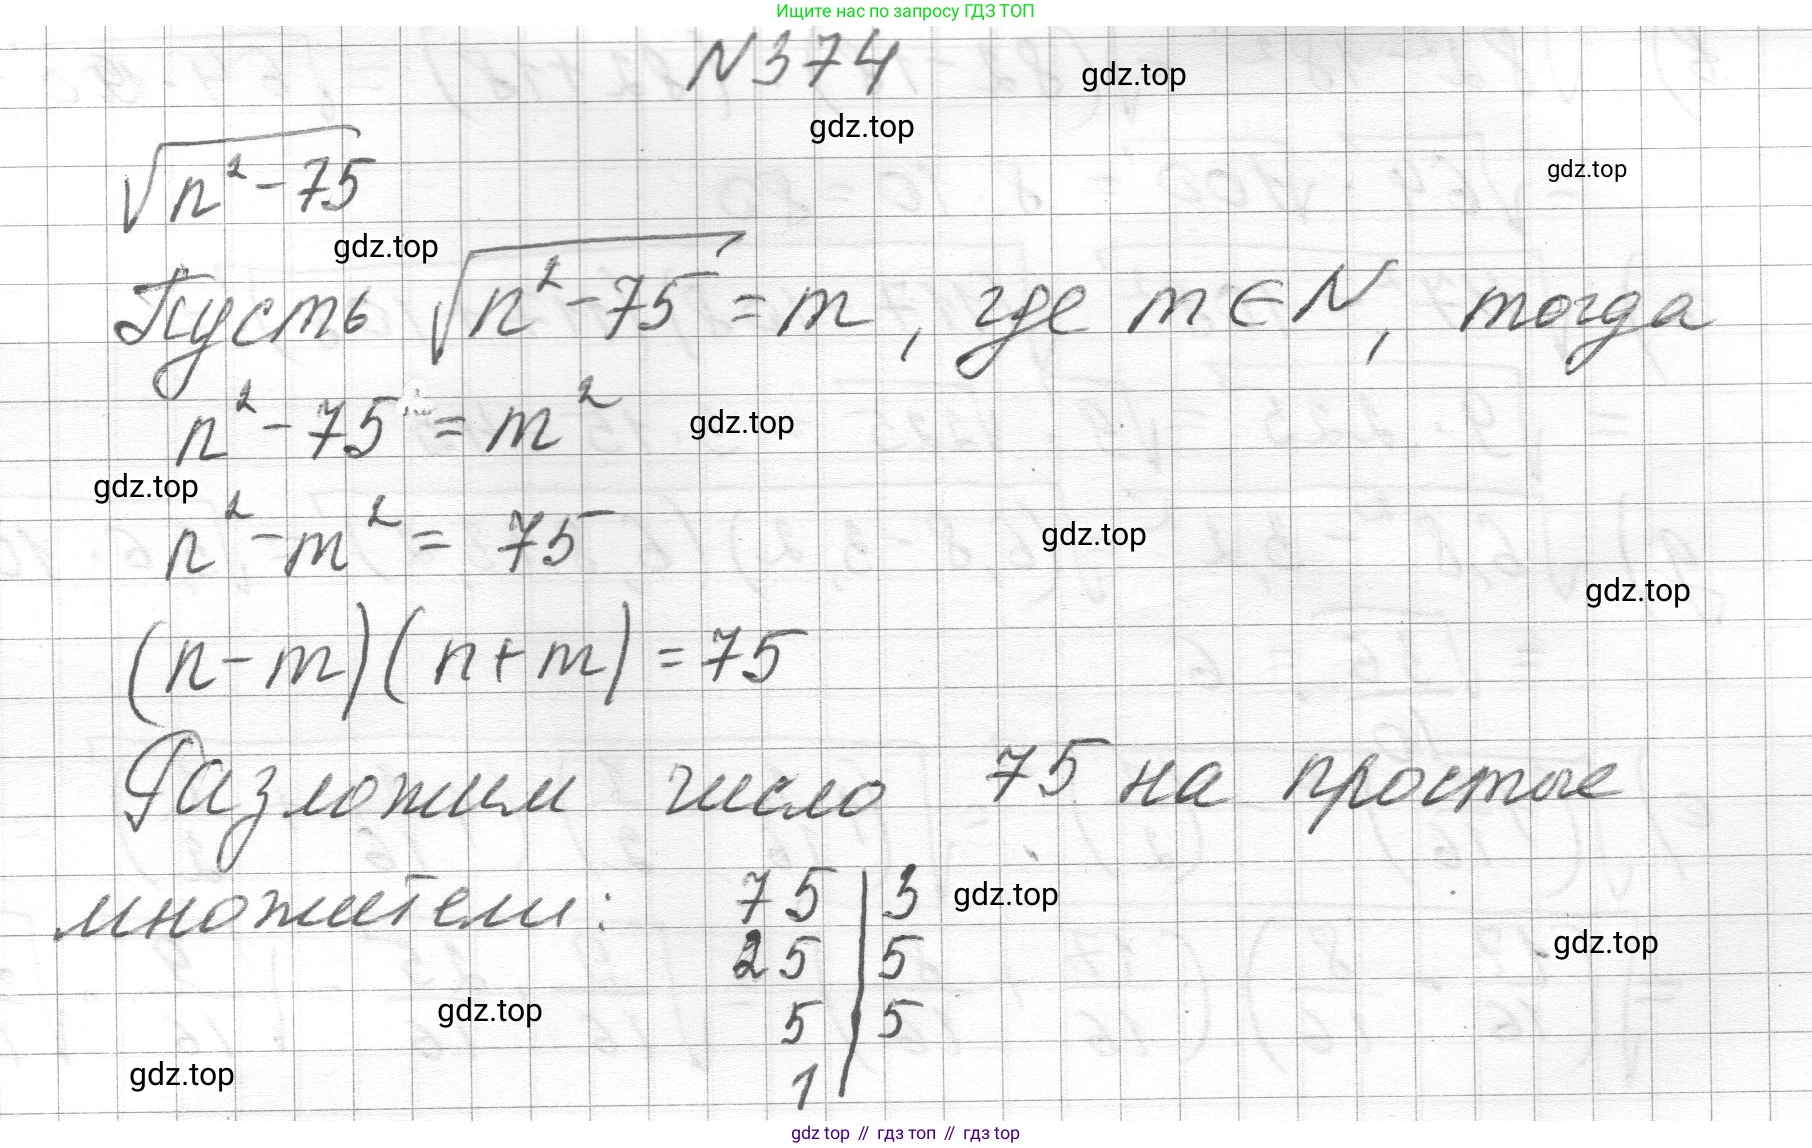 Ищите нас по запросу ГДЗ ТОП
N374
gdz.top
gdz.top
√n²-75
gdz.top
gdz.top
Пусть √n²-75 = m, где m∈N, тогда
n²-75 = m²
gdz.top
gdz.top
n²-m² = 75
gdz.top
gdz.top
(n-m)(n+m)=75
Разложим число 75 на простые
множители: 75 | 3
gdz.top
25 | 5
gdz.top
5 | 5
gdz.top
1
gdz.top
gdz top // гдз топ // gdz top